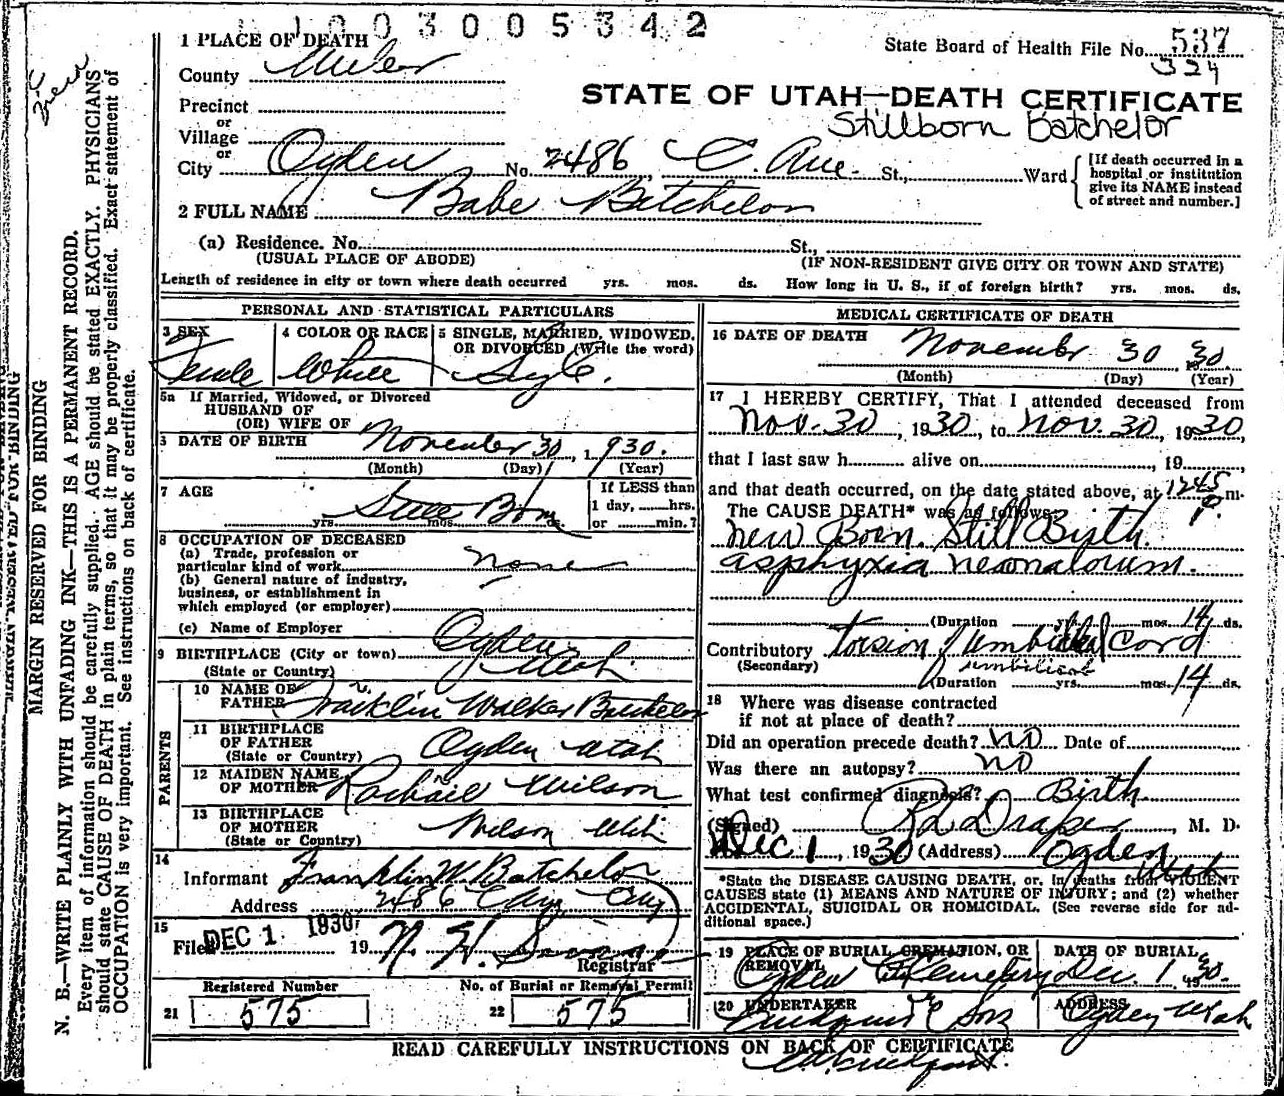 1003005342
1 PLACE OF DEATH
State Board of Health File No. 537
324
County Weber
STATE OF UTAH—DEATH CERTIFICATE
Stillborn Batchelor
Precinct
or
Village
or
City Ogden No. 2486 C. Ave. St., Ward
[If death occurred in a hospital or institution give its NAME instead of street and number.]
2 FULL NAME Babe Batchelor
(a) Residence. No. St.,
(USUAL PLACE OF ABODE) (IF NON-RESIDENT GIVE CITY OR TOWN AND STATE)
Length of residence in city or town where death occurred yrs. mos. ds. How long in U. S., if of foreign birth? yrs. mos. ds.
PERSONAL AND STATISTICAL PARTICULARS
3 SEX 4 COLOR OR RACE 5 SINGLE, MARRIED, WIDOWED, OR DIVORCED (Write the word)
Female White Single.
5a If Married, Widowed, or Divorced
HUSBAND OF
(OR) WIFE OF
6 DATE OF BIRTH November 30, 1930.
(Month) (Day) (Year)
7 AGE Still Born
yrs. mos. ds.
If LESS than
1 day, hrs.
or min.?
8 OCCUPATION OF DECEASED
(a) Trade, profession or
particular kind of work none
(b) General nature of industry,
business, or establishment in
which employed (or employer)
(c) Name of Employer
9 BIRTHPLACE (City or town) Ogden
(State or Country) Utah
PARENTS
10 NAME OF FATHER Franklin Walker Batchelor
11 BIRTHPLACE OF FATHER Ogden Utah
(State or Country)
12 MAIDEN NAME OF MOTHER Rachael Wilson
13 BIRTHPLACE OF MOTHER Wilson Utah
(State or Country)
14 Informant Franklin W. Batchelor
Address 2486
15 Filed DEC 1 1930 19
Registrar
Registered Number No. of Burial or Removal Permit
21 575 22 575
MEDICAL CERTIFICATE OF DEATH
16 DATE OF DEATH November 30 1930
(Month) (Day) (Year)
17 I HEREBY CERTIFY, That I attended deceased from
Nov. 30, 1930, to Nov. 30, 1930,
that I last saw h alive on , 19
and that death occurred, on the date stated above, at 1245 P. m.
The CAUSE DEATH* was as follows:
New Born. Still Birth.
asphyxia neonatorum.
(Duration yrs. mos. 14 ds.
Contributory torsion of umbilical Cord
(Secondary) umbilical
(Duration yrs. mos. 14 ds.
18 Where was disease contracted
if not at place of death?
Did an operation precede death? NO Date of
Was there an autopsy? NO
What test confirmed diagnosis? Birth
(Signed) Draper, M. D.
Dec 1, 1930 (Address) Ogden
Utah
*State the DISEASE CAUSING DEATH, or, in deaths from VIOLENT
CAUSES state (1) MEANS AND NATURE OF INJURY; and (2) whether
ACCIDENTAL, SUICIDAL OR HOMICIDAL. (See reverse side for ad-
ditional space.)
19 PLACE OF BURIAL, CREMATION, OR REMOVAL DATE OF BURIAL
Ogden Cemetery Dec. 1, 1930.
20 UNDERTAKER ADDRESS
Lindquist & Sons Ogden Utah
READ CAREFULLY INSTRUCTIONS ON BACK OF CERTIFICATE
Lindquist.
MARGIN RESERVED FOR BINDING
N. B.—WRITE PLAINLY WITH UNFADING INK—THIS IS A PERMANENT RECORD.
Every item of information should be carefully supplied. AGE should be stated EXACTLY. PHYSICIANS
should state CAUSE OF DEATH in plain terms, so that it may be properly classified. Exact statement of
OCCUPATION is very important. See instructions on back of certificate.